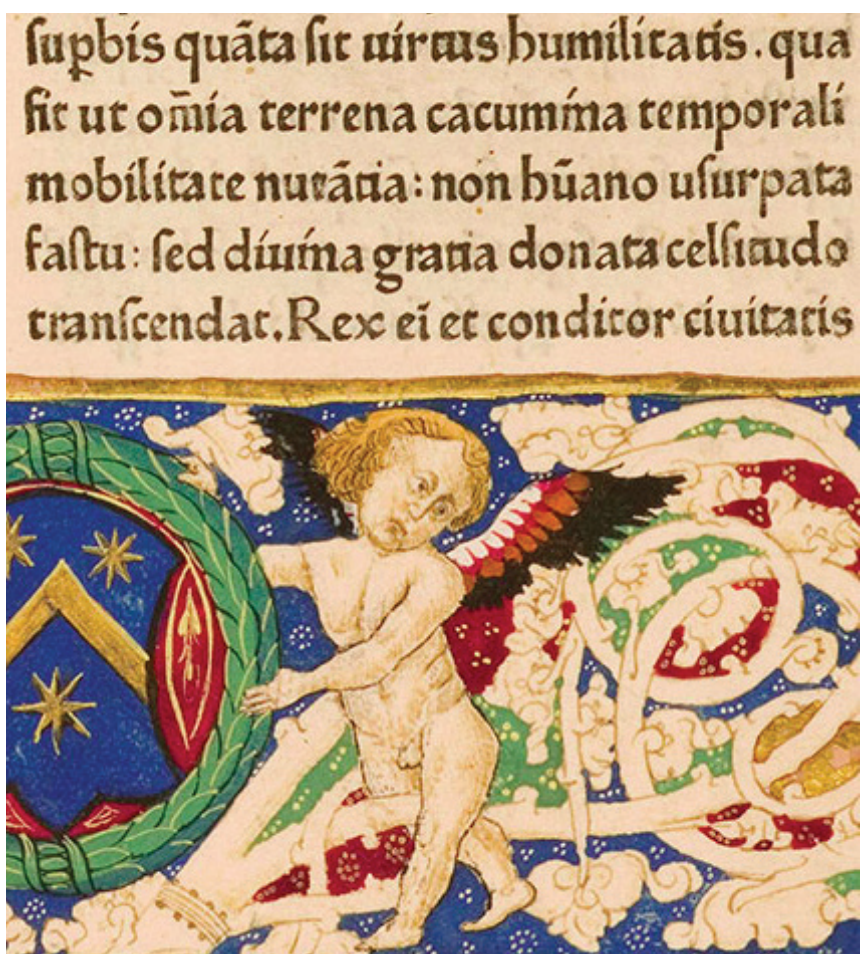 suꝑbis quãta sit uirtus humilitatis.qua
fit ut om̃ia terrena cacumina temporali
mobilitate nutãtia: non hũano usurpata
fastu: sed diuina gratia donata celsitudo
transcendat. Rex ei᷑ et conditor ciuitatis